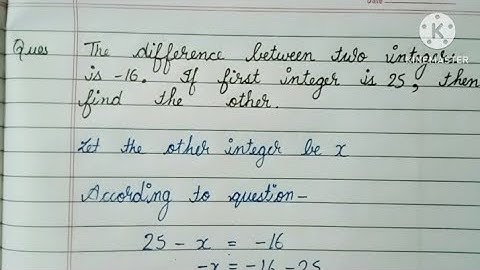 Date
K
KINEMASTER
Ques The difference between two integers
is -16. If first integer is 25, then
find the other.
Let the other integer be x
According to question-
25 - x = -16
-x = -16 - 25